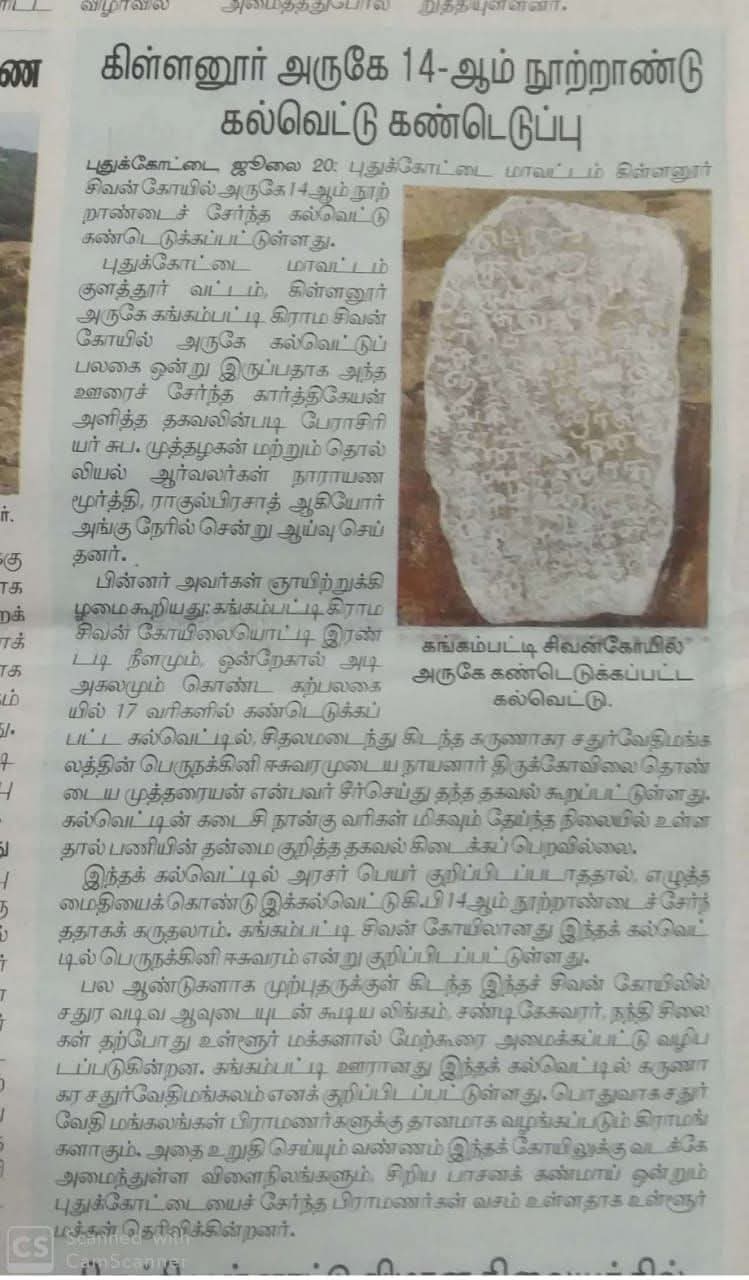 விழாவில் அமைத்ததுபோல்
கிள்ளனூர் அருகே 14-ஆம் நூற்றாண்டு
கல்வெட்டு கண்டெடுப்பு
புதுக்கோட்டை, ஜூலை 20: புதுக்கோட்டை மாவட்டம் கிள்ளனூர்
சிவன் கோயில் அருகே 14ஆம் நூற்
றாண்டைச் சேர்ந்த கல்வெட்டு
கண்டெடுக்கப்பட்டுள்ளது.
புதுக்கோட்டை மாவட்டம்
குளத்தூர் வட்டம், கிள்ளனூர்
அருகே கங்கம்பட்டி கிராம சிவன்
கோயில் அருகே கல்வெட்டுப்
பலகை ஒன்று இருப்பதாக அந்த
ஊரைச் சேர்ந்த கார்த்திகேயன்
அளித்த தகவலின்படி பேராசிரி
யர் சுப. முத்தழகன் மற்றும் தொல்
லியல் ஆர்வலர்கள் நாராயண
மூர்த்தி, ராகுல்பிரசாத் ஆகியோர்
அங்கு நேரில் சென்று ஆய்வு செய்
தனர்.
பின்னர் அவர்கள் ஞாயிற்றுக்கி
ழமை கூறியது: கங்கம்பட்டி கிராம
சிவன் கோயிலையொட்டி இரண்
டடி நீளமும், ஒன்றேகால் அடி
அகலமும் கொண்ட கற்பலகை
யில் 17 வரிகளில் கண்டெடுக்கப்
பட்ட கல்வெட்டில், சிதலமடைந்து கிடந்த கருணாகர சதுர்வேதிமங்க
லத்தின் பெருநக்கினி ஈசுவரமுடைய நாயனார் திருக்கோவிலை தொண்
டைய முத்தரையன் என்பவர் சீர்செய்து தந்த தகவல் கூறப்பட்டுள்ளது.
கல்வெட்டின் கடைசி நான்கு வரிகள் மிகவும் தேய்ந்த நிலையில் உள்ள
தால் பணியின் தன்மை குறித்த தகவல் கிடைக்கப் பெறவில்லை.
இந்தக் கல்வெட்டில் அரசர் பெயர் குறிப்பிடப்படாததால், எழுத்த
மைதியைக்கொண்டு இக்கல்வெட்டு கி.பி 14ஆம் நூற்றாண்டைச் சேர்ந்
ததாகக் கருதலாம். கங்கம்பட்டி சிவன் கோயிலானது இந்தக் கல்வெட்
டில் பெருநக்கினி ஈசுவரம் என்று குறிப்பிடப்பட்டுள்ளது.
பல ஆண்டுகளாக முற்புதருக்குள் கிடந்த இந்தச் சிவன் கோயிலில்
சதுர வடிவ ஆவுடையுடன் கூடிய லிங்கம், சண்டிகேசுவரர், நந்தி சிலை
கள் தற்போது உள்ளூர் மக்களால் மேற்கூரை அமைக்கப்பட்டு வழிப
டப்படுகின்றன. கங்கம்பட்டி ஊரானது இந்தக் கல்வெட்டில் கருணா
கர சதுர்வேதிமங்கலம் எனக் குறிப்பிடப்பட்டுள்ளது. பொதுவாக சதுர்
வேதி மங்கலங்கள் பிராமணர்களுக்கு தானமாக வழங்கப்படும் கிராமங்
களாகும். அதை உறுதி செய்யும் வண்ணம் இந்தக் கோயிலுக்கு வடக்கே
அமைந்துள்ள விளைநிலங்களும், சிறிய பாசனக் கண்மாய் ஒன்றும்
புதுக்கோட்டையைச் சேர்ந்த பிராமணர்கள் வசம் உள்ளதாக உள்ளூர்
மக்கள் தெரிவிக்கின்றனர்.
கங்கம்பட்டி சிவன்கோயில்
அருகே கண்டெடுக்கப்பட்ட
கல்வெட்டு.
CS Scanned with
CamScanner